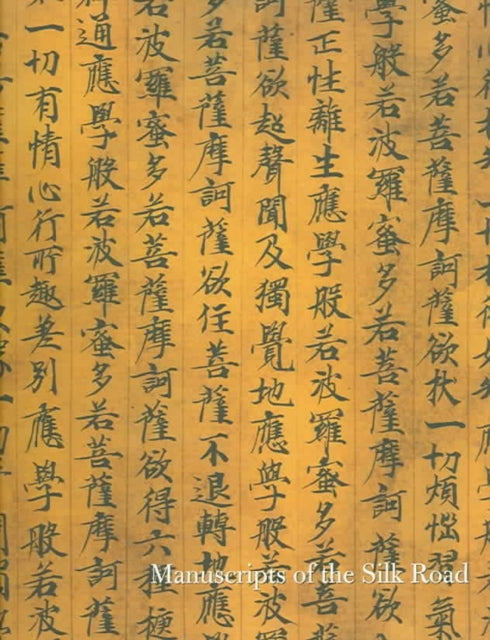 蜜多若菩薩摩訶薩欲拔一切煩惱習氣
學般若波羅蜜多若菩薩摩訶薩欲
薩正性離生應學般若波羅蜜多若菩
訶薩欲超聲聞及獨覺地應學般若波
多若菩薩摩訶薩欲住菩薩不退轉地應
若波羅蜜多若菩薩摩訶薩欲得六種
通應學般若波羅蜜多若菩薩摩訶薩
一切有情心行所趣差別應學般若波
Manuscripts of the Silk Road